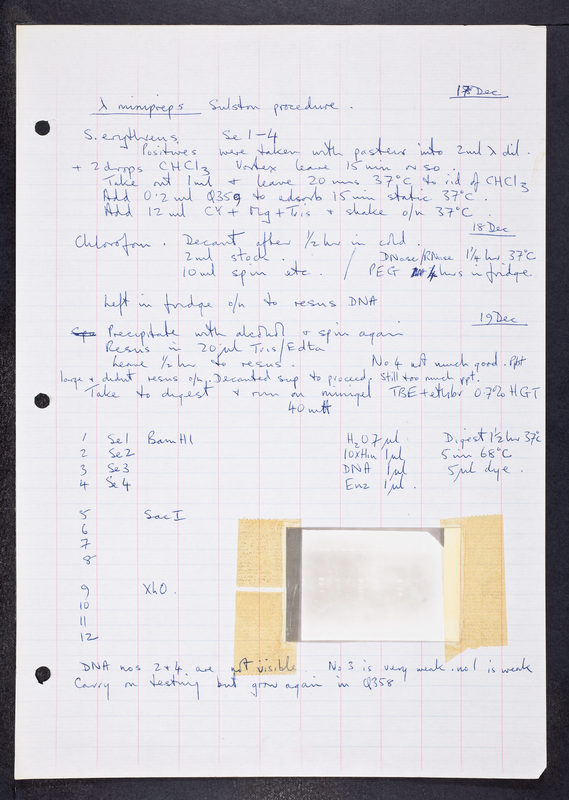 17 Dec
λ minipreps Sulston procedure.
S. erythreus Se 1-4
Positives were taken with pasteurs into 2ml λ dil.
+ 2 drops CHCl3 Vortex leave 15 min or so
Take out 1ml + leave 20 mins 37°C to rid of CHCl3
Add 0.2ml Q359 to adsorb 15 min static 37°C.
Add 12 ml CY + Mg + Tris + shake o/n 37°C
18 Dec
Chloroform. Decant after 1/2 hr in cold.
2ml stock. / DNase/RNase 1 1/4 hr 37°C
10ml spin etc. / PEG hrs in fridge.
Left in fridge o/n to resus DNA
19 Dec
Precipitate with alcohol + spin again
Resus in 20 µl Tris/Edta
Leave 1/2 hr to resus. No 4 not much good. ppt
large + didnt resus o/n. Decanted sup to proceed. Still too much ppt.
Take to digest + run on minigel TBE + etbr 0.7% HGT
40 mA
1 Se1 BamHI H2O 7µl Digest 1 1/2 hr 37°C
2 Se2 10xHin 1µl 5 min 68°C
3 Se3 DNA 1µl 5µl dye.
4 Se4 Enz 1µl.
5 SacI
6
7
8
9 XhO.
10
11
12
DNA nos 2+4 are not visible. No 3 is very weak. no 1 is weak
Carry on testing but grow again in Q358